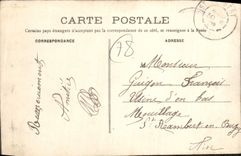 CARTE POSTALE
Certains pays étrangers n'acceptent pas la correspondance de ce côté, se renseigner à la Poste
CORRESPONDANCE
ADRESSE
78
Monsieur
Guigon François
Usine d'en bas
St Rambert en Bugey
Ain
Amitiés